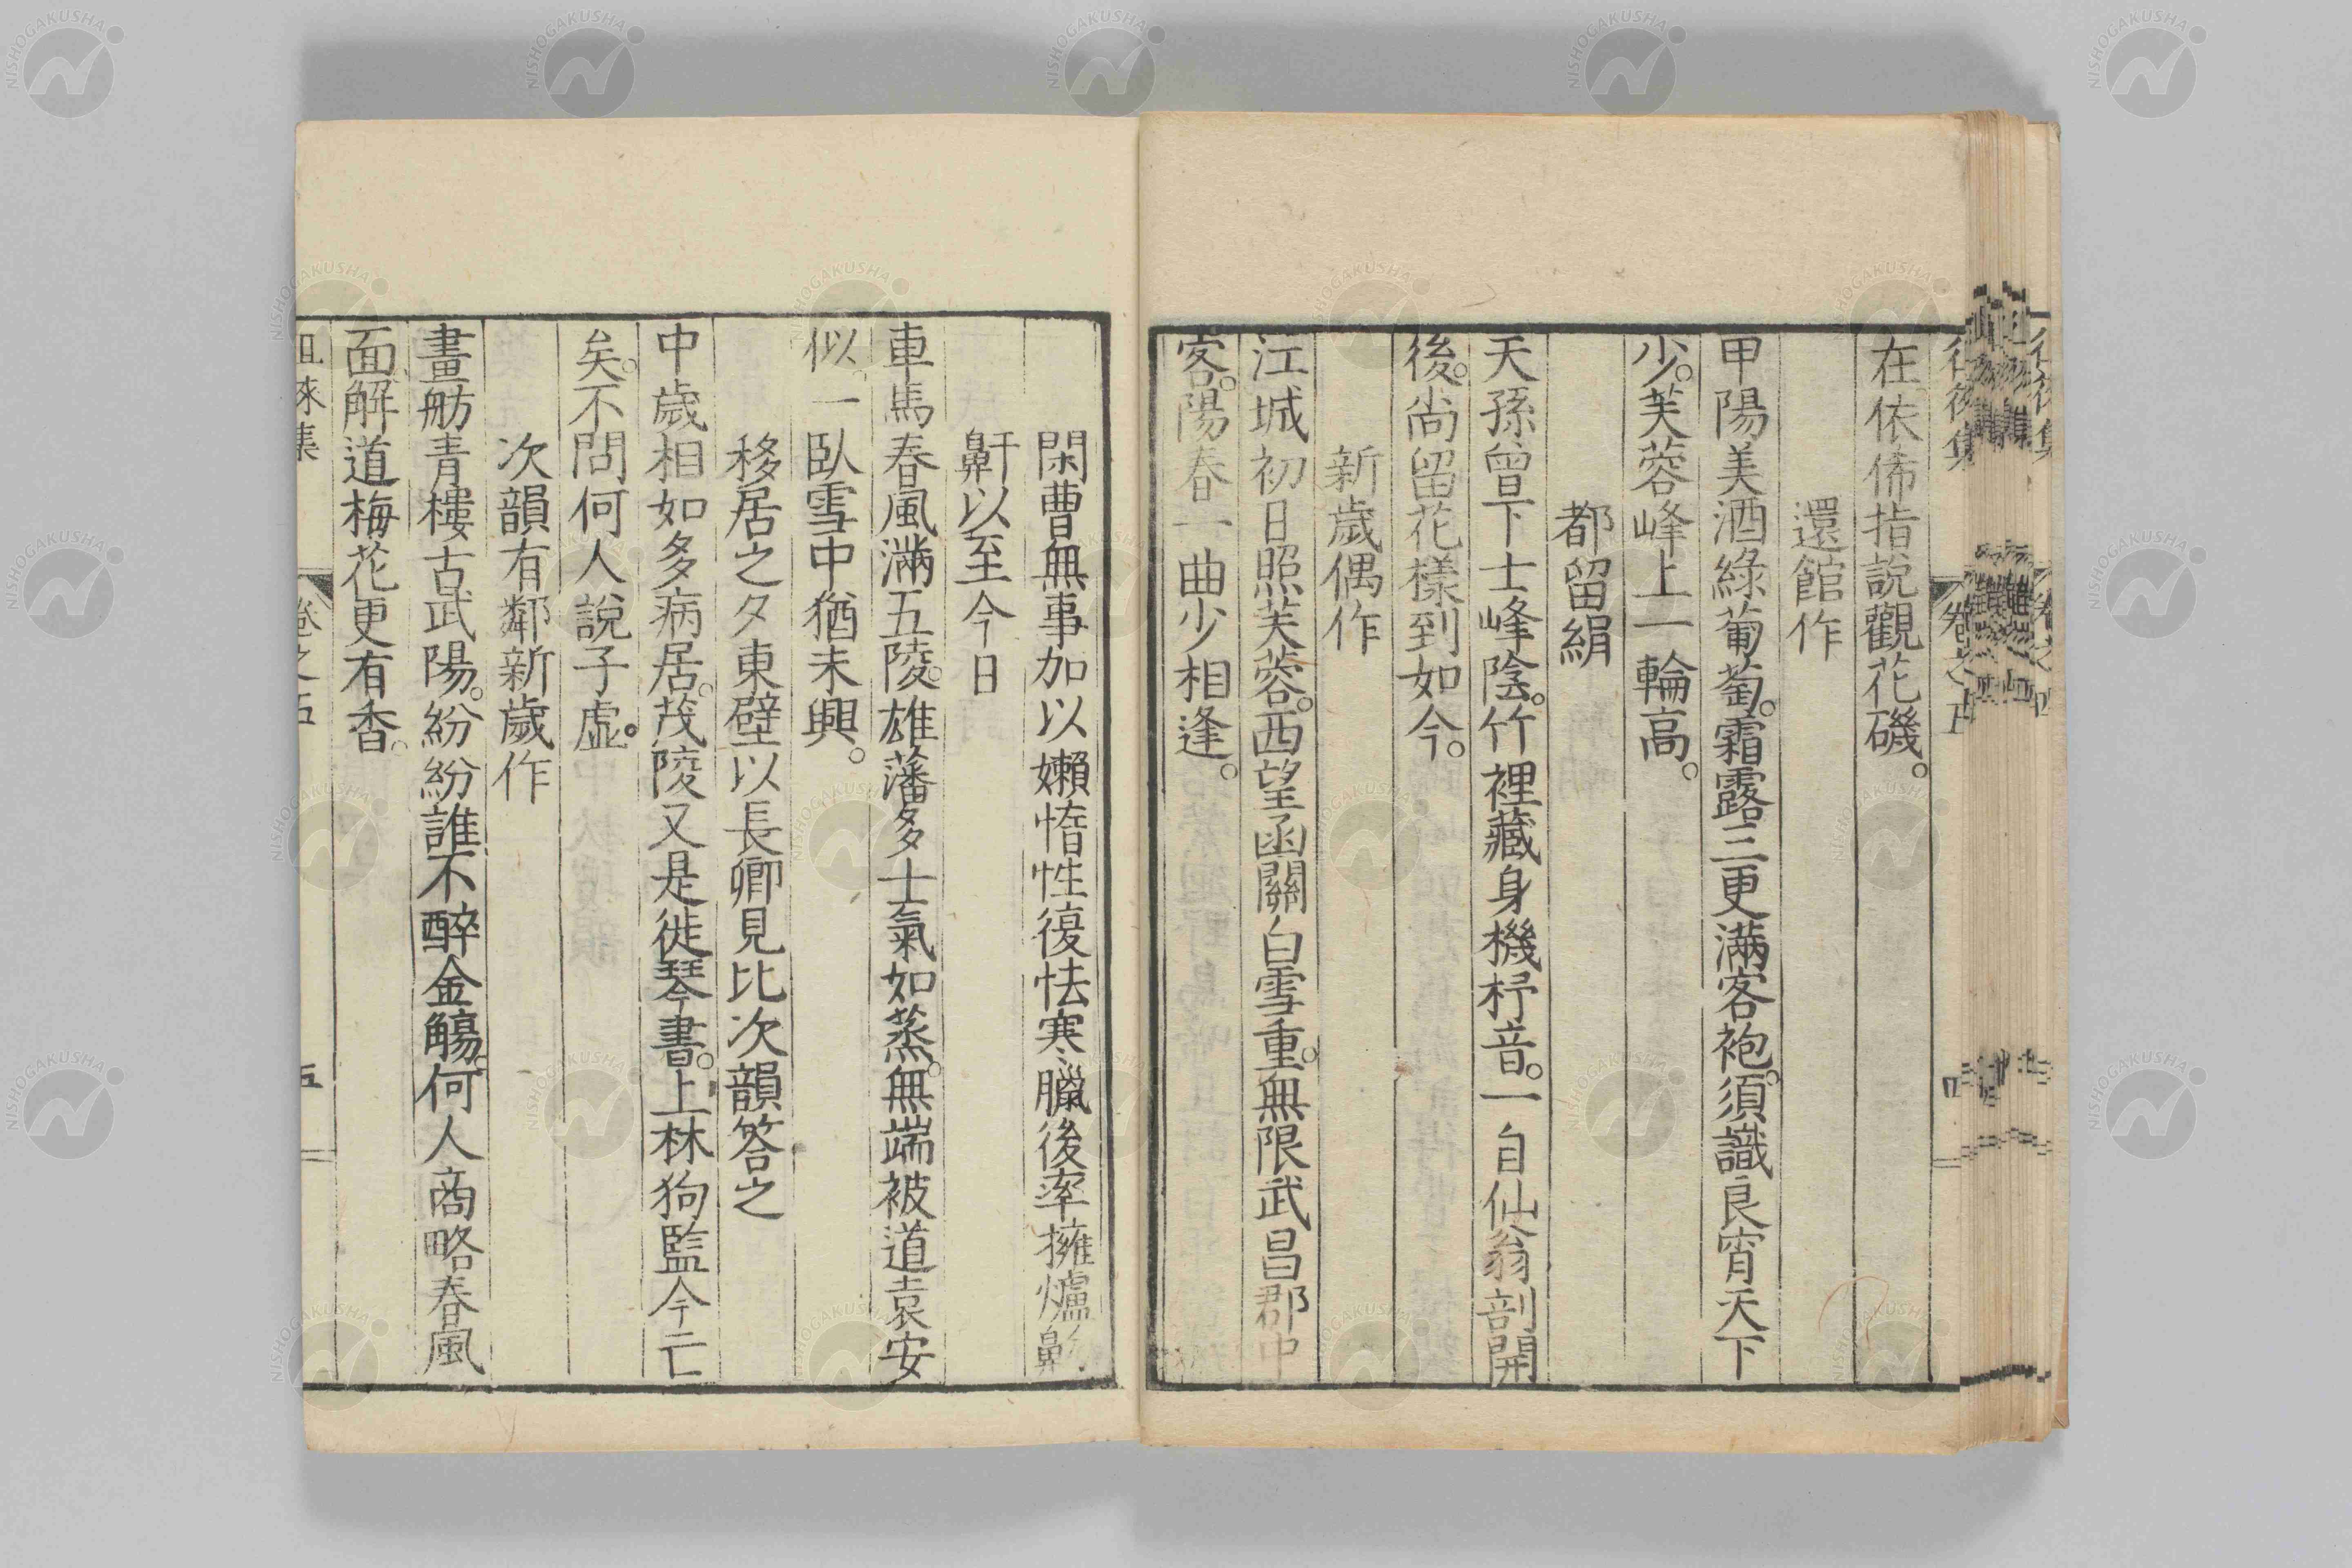 在依俙指說觀花磯。
還館作
甲陽美酒綠葡萄。霜露三更滿客袍。須識良宵天下
少。芙蓉峰上一輪高。
都留絹
天孫曾下士峰陰。竹裡藏身機杼音。一自仙翁剖開
後。尚留花樣到如今。
新歲偶作
江城初日照芙蓉。西望函關白雪重。無限武昌郡中
客。陽春一曲少相逢。
閑曹無事加以嬾惰性復怯寒臘後率擁爐鼻
鼾以至今日
車馬春風滿五陵。雄藩多士氣如蒸。無端被道袁安
似。一臥雪中猶未興。
移居之夕東壁以長卿見比次韻答之
中歲相如多病居。茂陵又是徙琴書。上林狗監今亡
矣。不問何人說子虛。
次韻有鄰新歲作
畫舫青樓古武陽。紛紛誰不醉金觴。何人商略春風
面解道梅花更有香。
徂徠集 卷之五 五
NISHOGAKUSHA